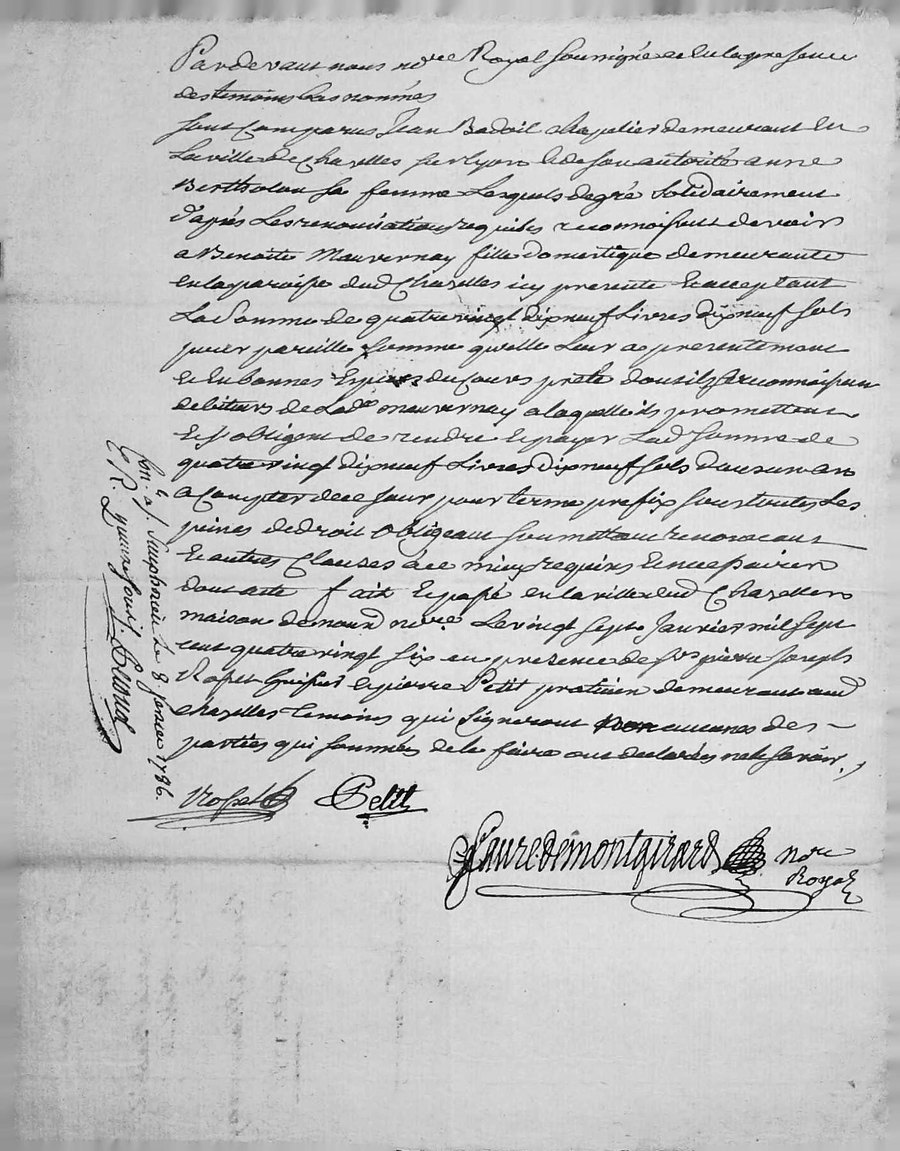 Pardevant nous no.re Royal soussigné et en la presence
des temoins bas nommés
sont Comparus Jean Badoil chapelier demeurant en
La ville de Chazelles sur lyon & de son autorité anne
Bertholon sa femme Lesquels de gré solidairement
d'après Les renonciations requises reconnoissent devoir
a Benoite Mauvernay fille domestique demeurante
en la paroisse dud Chazelles icy presente & acceptant
La Somme de quatre vingt dix neuf Livres dix neuf sols
pour pareille somme qu'elle leur a presentement
& en bonnes Especes du Cours preté dont ils se reconnoissent
debiteurs de Lad.e mauvernay a laquelle ils promettent
et s'obligent de rendre et payer Lad Somme de
quatre vingt dix neuf Livres dix neuf sols dans un an
a Compter de ce Jour pour terme prefix sous toutes Les
peines de droit obligeant soumettant renonceant
& autres Clauses a ce mieux requises & necessaires
dont acte fait et passé en la ville dud Chazelles
maison de nousd no.re Le vingt sept Janvier mil sept
cent quatre vingt six en presence de S.rs pierre Joseph
et pierre Petit praticien demeurant aud
chazelles temoins qui signeront aucunes des
parties qui sommées de le faire ont declarés ne le savoir./
Petit
Faure: demontgirard no.re
Royal
Con. a S. Simphorien Le 8 fevrier 1786.
R. quinze sous